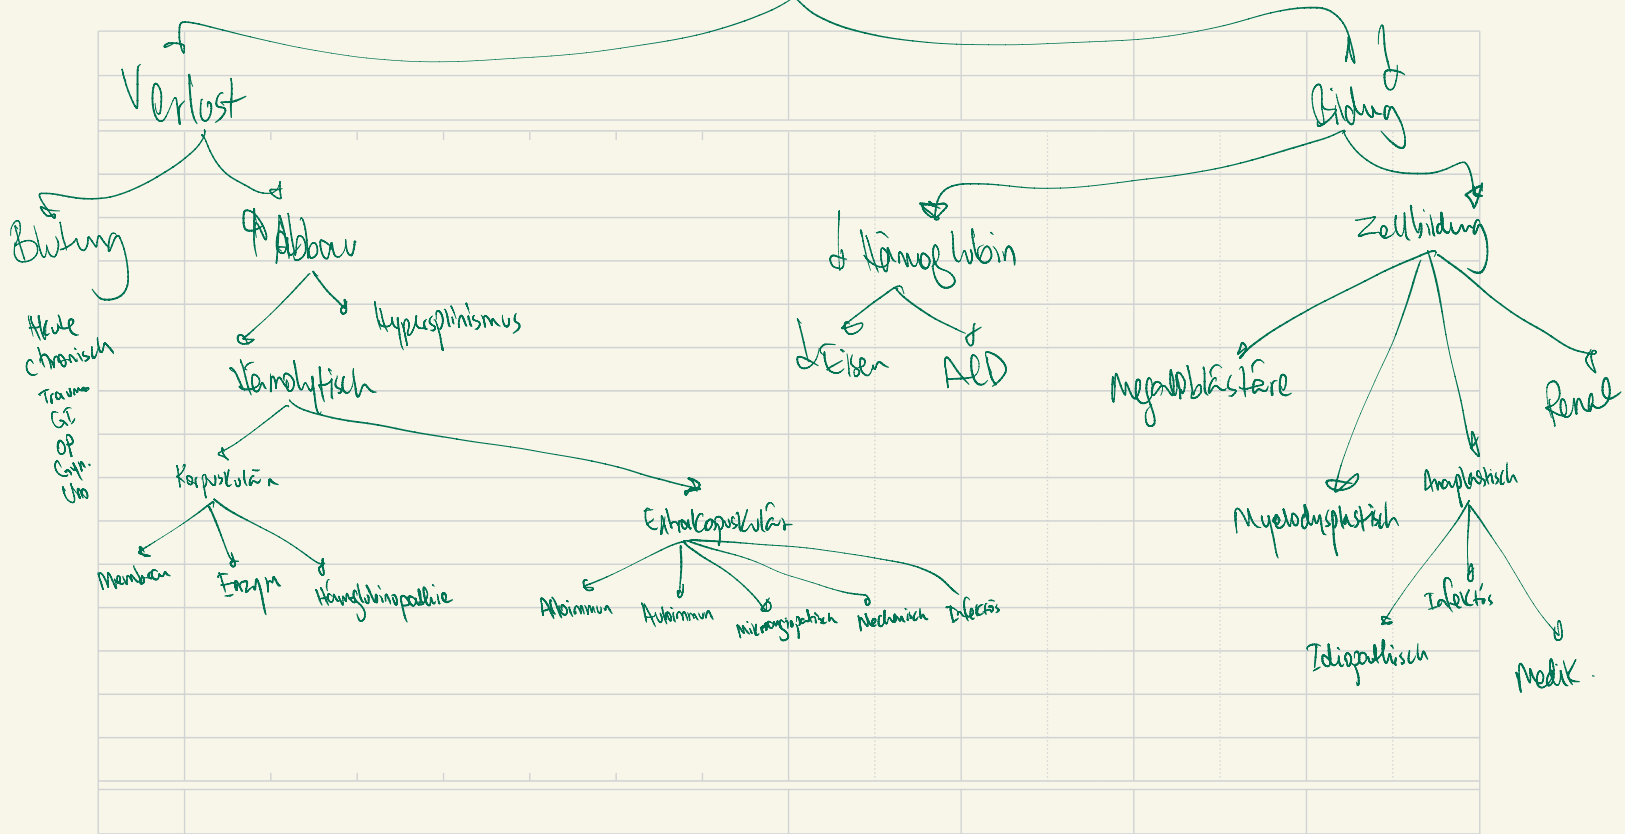 Verlust
↓ Bildung
Blutung
↑ Abbau
↓ Hämoglobin
Zellbildung
Akute
chronisch
Trauma
GI
OP
Gyn.
Uro
Hypersplinismus
Hämolytisch
↓ Eisen
ACD
Megaloblastäre
Renal
Korpuskulär
Extrakorpuskulär
Myelodysplastisch
Anaplastisch
Membran
Enzym
Hämoglobinopathie
Alloimmun
Autoimmun
Mikroangiopatisch
Mechanisch
Infektös
Infektös
Idiopathisch
Medik.